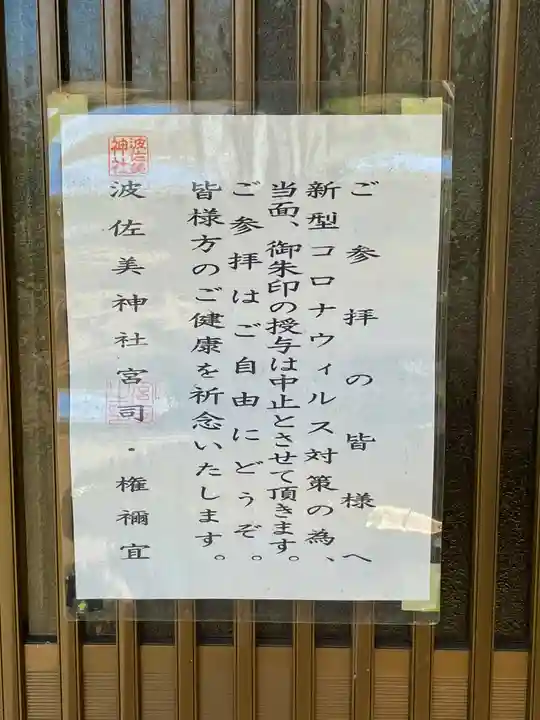 ご参拝の皆様へ
新型コロナウィルス対策の為、
当面、御朱印の授与は中止とさせて頂きます。
ご参拝はご自由にどうぞ。
皆様方のご健康を祈念いたします。
波佐美神社
波佐美神社宮司・権禰宜